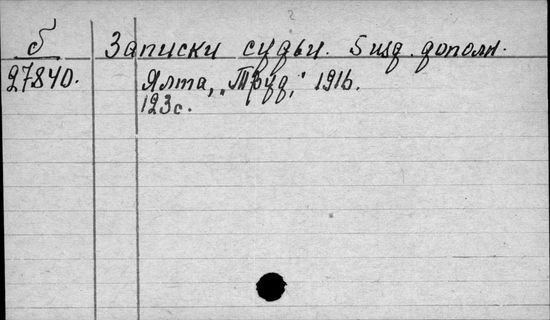 б Записки судьи. 5 изд. дополн.
27840. Ялта, „Труд," 1916.
123 с.